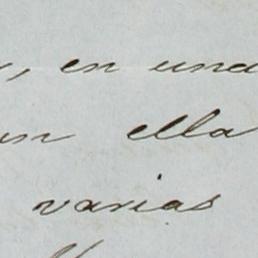 en una
ella
varias